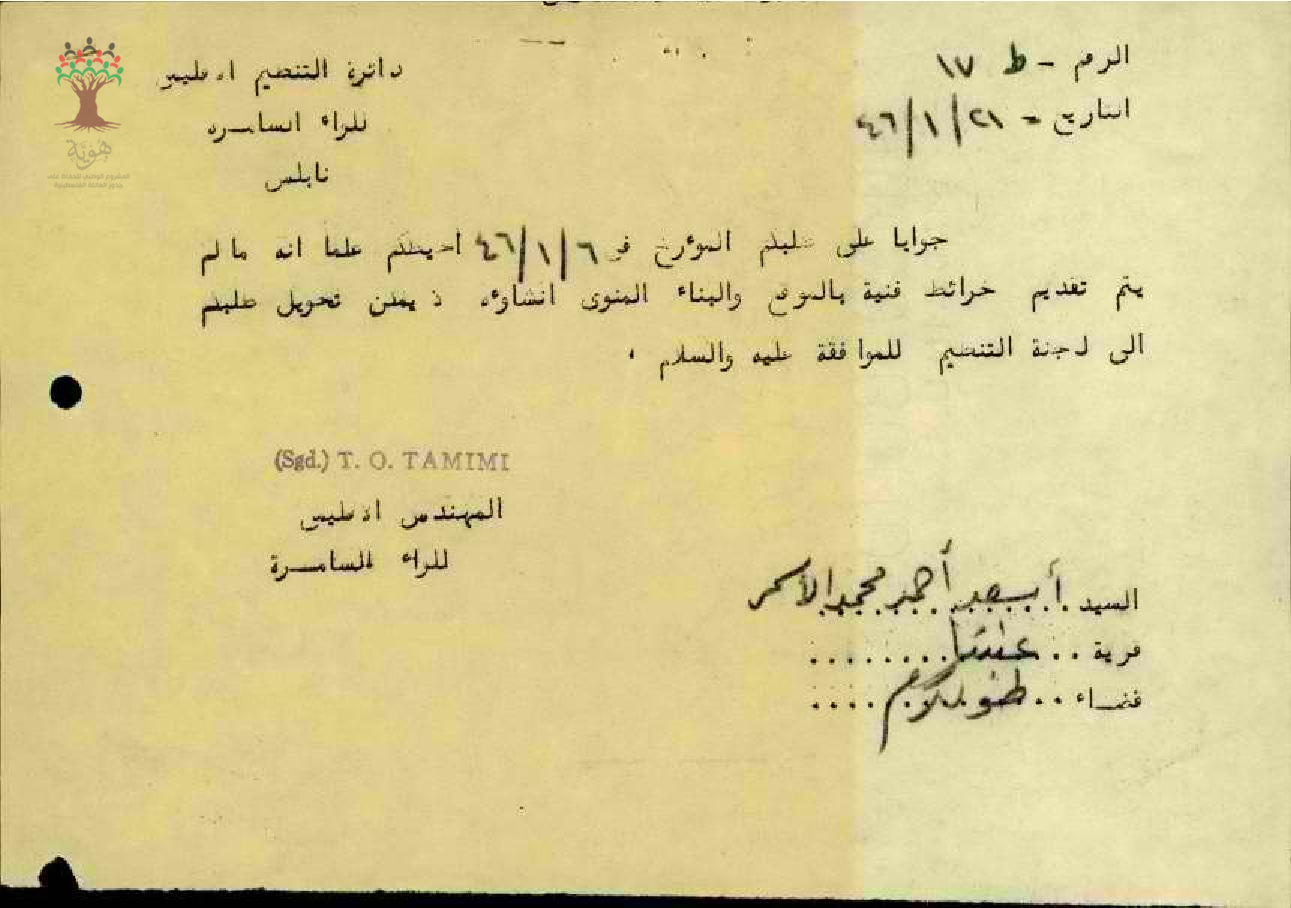 الرقم - ط ١٧
التاريخ - ٤٦/١/٢١
دائرة التنظيم الاقليمي
للواء السامرة
نابلس
هوية
المشروع الوطني للحفاظ على
جذور العائلة الفلسطينية
جوابا على طلبكم المؤرخ في ٤٦/١/٦ احيطكم علما انه ما لم
يتم تقديم خرائط فنية بالموقع والبناء المنوى انشاؤه لا يمكن تحويل طلبكم
الى لجنة التنظيم للموافقة عليه والسلام .
(Sgd.) T. O. TAMIMI
المهندس الاقليمي
للواء السامرة
السيد . أسعد أحمد محمد الأسمر
قرية . . عنبتا . . . . . . . .
قضاء . . طولكرم . . . .